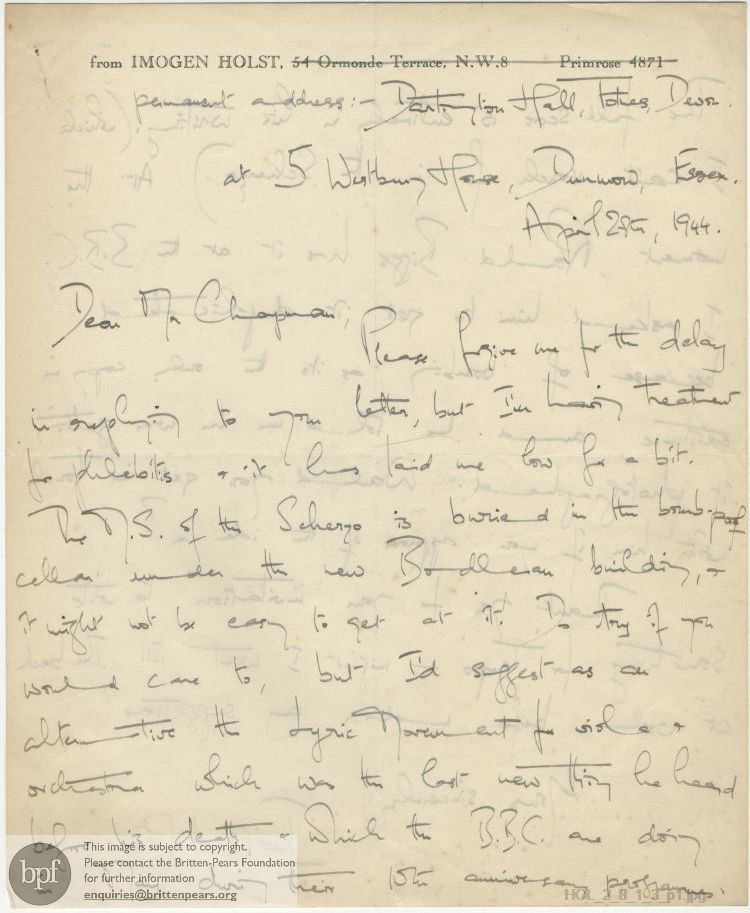 from IMOGEN HOLST, 54 Ormonde Terrace, N.W.8 Primrose 4871
permanent address:- Dartington Hall, Totnes, Devon.
at 5 Westbury House, Dunmow, Essex.
April 28th, 1944.
Dear Mr Chapman,
Please forgive me for the delay
in replying to your letter, but I'm having treatment
for phlebitis & it has laid me low for a bit.
The M.S. of the Scherzo is buried in the bomb-proof
cellar under the new Bodleian building, &
it might not be easy to get at it. Do try if you
would care to, but I'd suggest as an
alternative the Lyric Movement for viola &
orchestra which was the last new thing he heard
before his death & which the B.B.C. are doing
during their 10th anniversary programmes.
bpf
This image is subject to copyright.
Please contact the Britten-Pears Foundation
for further information
enquiries@brittenpears.org
HOL_2_8_1_3_p1.jpg